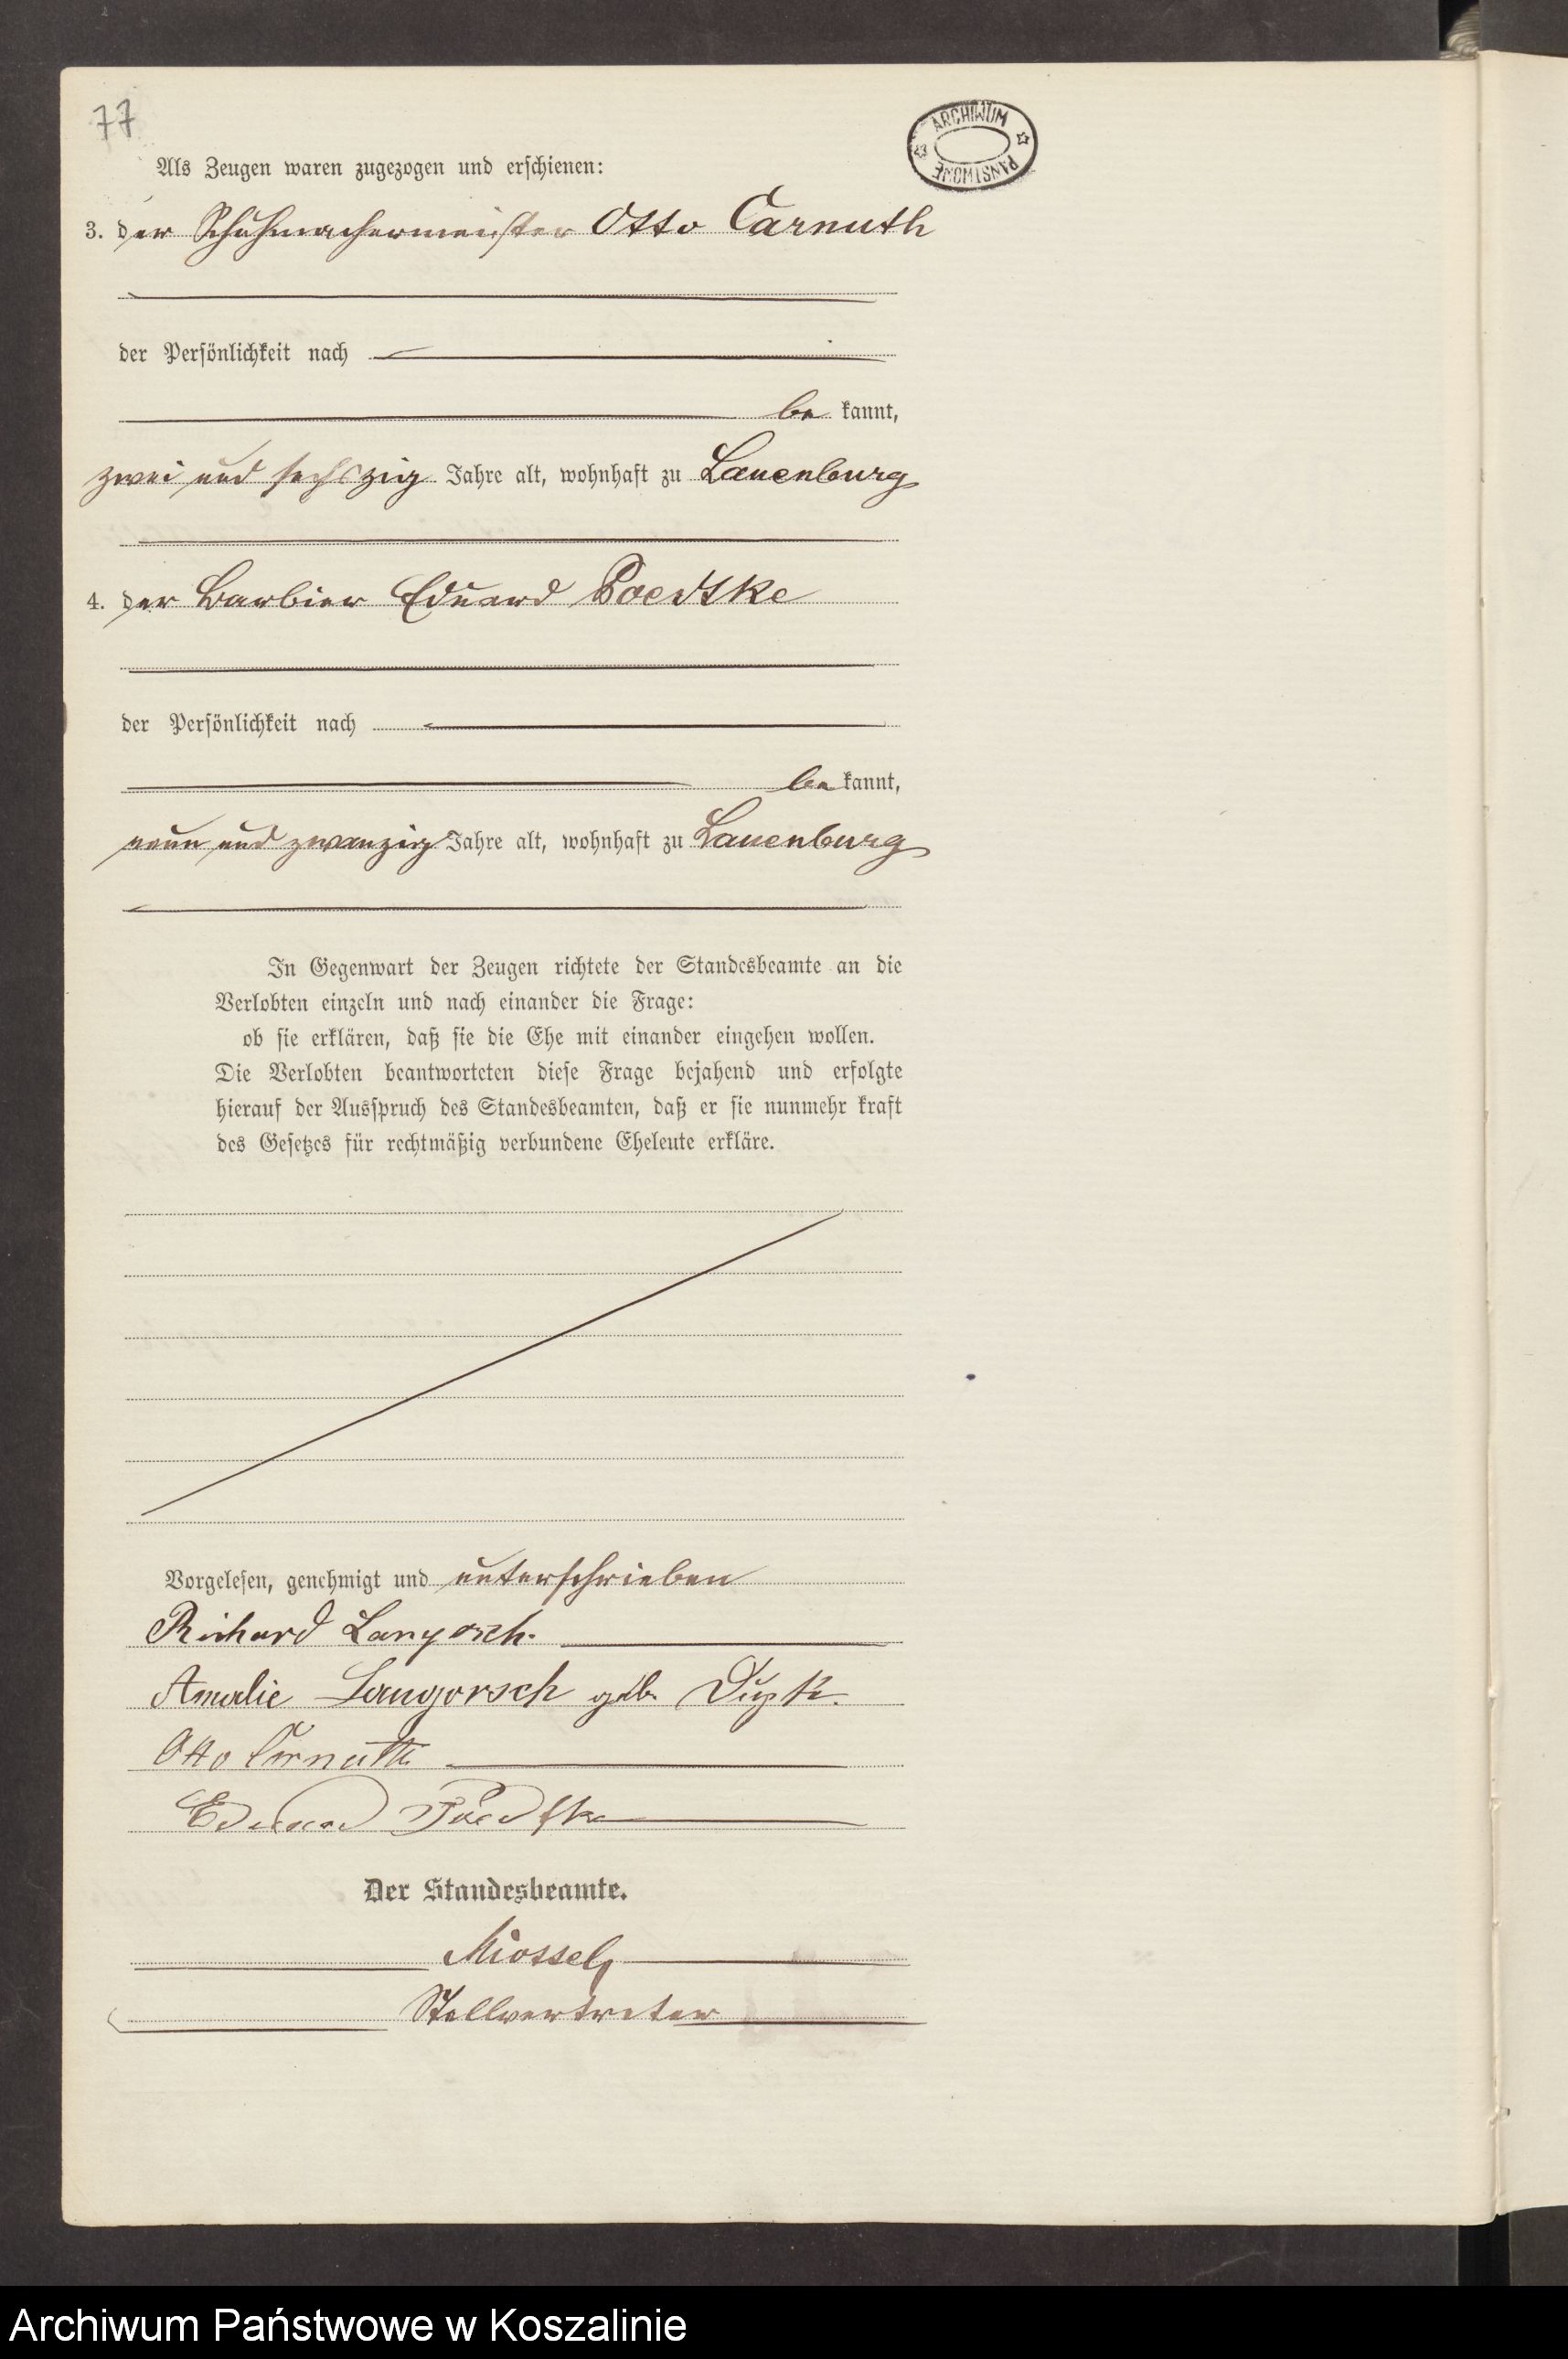 77
ARCHIWUM
PAŃSTWOWE
Als Zeugen waren zugezogen und erschienen:
3. der Schuhmachermeister Otto Carnuth
der Persönlichkeit nach
be kannt,
zwei und sechszig Jahre alt, wohnhaft zu Lauenburg
4. der Barbier Eduard Poedtke
der Persönlichkeit nach
be kannt,
neun und zwanzig Jahre alt, wohnhaft zu Lauenburg
In Gegenwart der Zeugen richtete der Standesbeamte an die
Verlobten einzeln und nach einander die Frage:
ob sie erklären, daß sie die Ehe mit einander eingehen wollen.
Die Verlobten beantworteten diese Frage bejahend und erfolgte
hierauf der Ausspruch des Standesbeamten, daß er sie nunmehr kraft
des Gesetzes für rechtmäßig verbundene Eheleute erkläre.
Vorgelesen, genehmigt und unterschrieben
Richard Langosch.
Amalie Langorsch geb.
Otto Carnuth
Eduard
Der Standesbeamte.
Stellvertreter
Archiwum Państwowe w Koszalinie